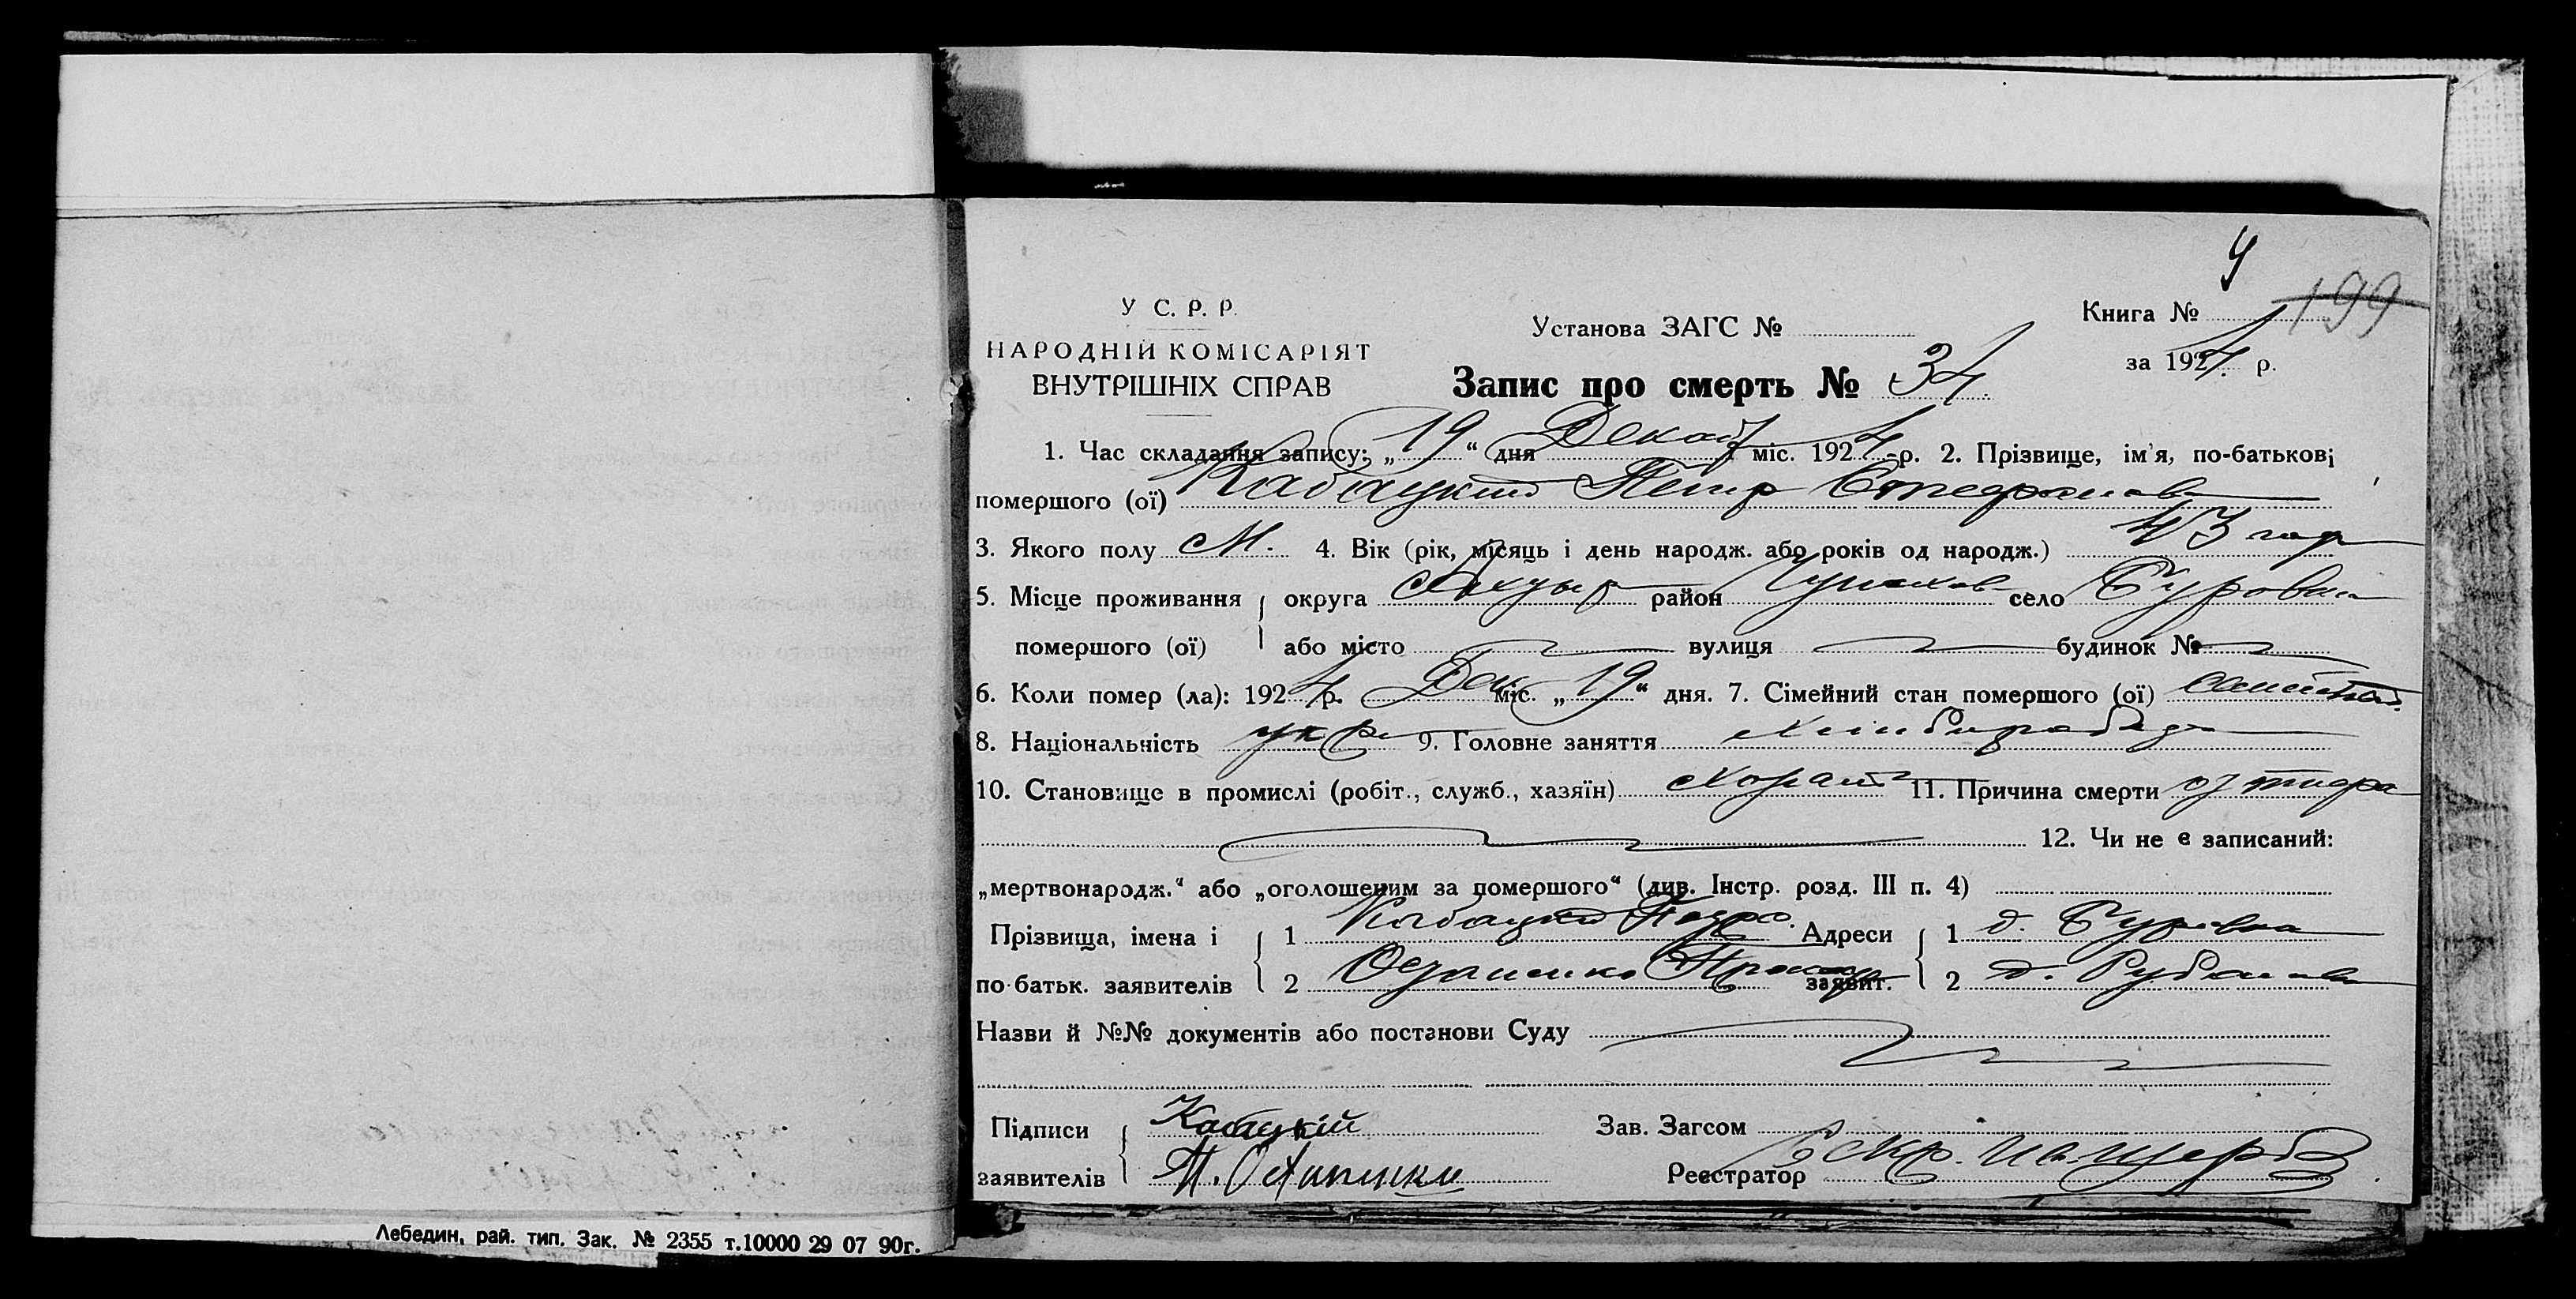 4
У С. Р. Р.
Установа ЗАГС №
Книга № 199
НАРОДНІЙ КОМІСАРІЯТ
за 1924 р.
ВНУТРІШНІХ СПРАВ
Запис про смерть № 34
1. Час складання запису: „19“ дня Декаб міс. 1924 р. 2. Прізвище, ім'я, по-батькові
помершого (ої) Кабацкий Петр Стефанов
3. Якого полу М. 4. Вік (рік, місяць і день народж. або років од народж.) 43 года
5. Місце проживання округа район село Буровка
помершого (ої) або місто вулиця будинок №
6. Коли помер (ла): 1924 р. Дек міс. „19“ дня. 7. Сімейний стан помершого (ої)
8. Національність укр 9. Головне заняття
10. Становище в промислі (робіт., служб., хазяїн) 11. Причина смерти от тифа
12. Чи не є записаний:
„мертвонародж.“ або „оголошеним за помершого“ (див. Інстр. розд. III п. 4)
Прізвища, імена і 1 Кабацкий Адреси 1 д. Буровка
по-батьк. заявителів 2 заявит. 2 д.
Назви й №№ документів або постанови Суду
Підписи Кабацкій Зав. Загсом
заявителів Реєстратор Секр.
Лебедин, рай. тип. Зак. № 2355 т.10000 29 07 90г.